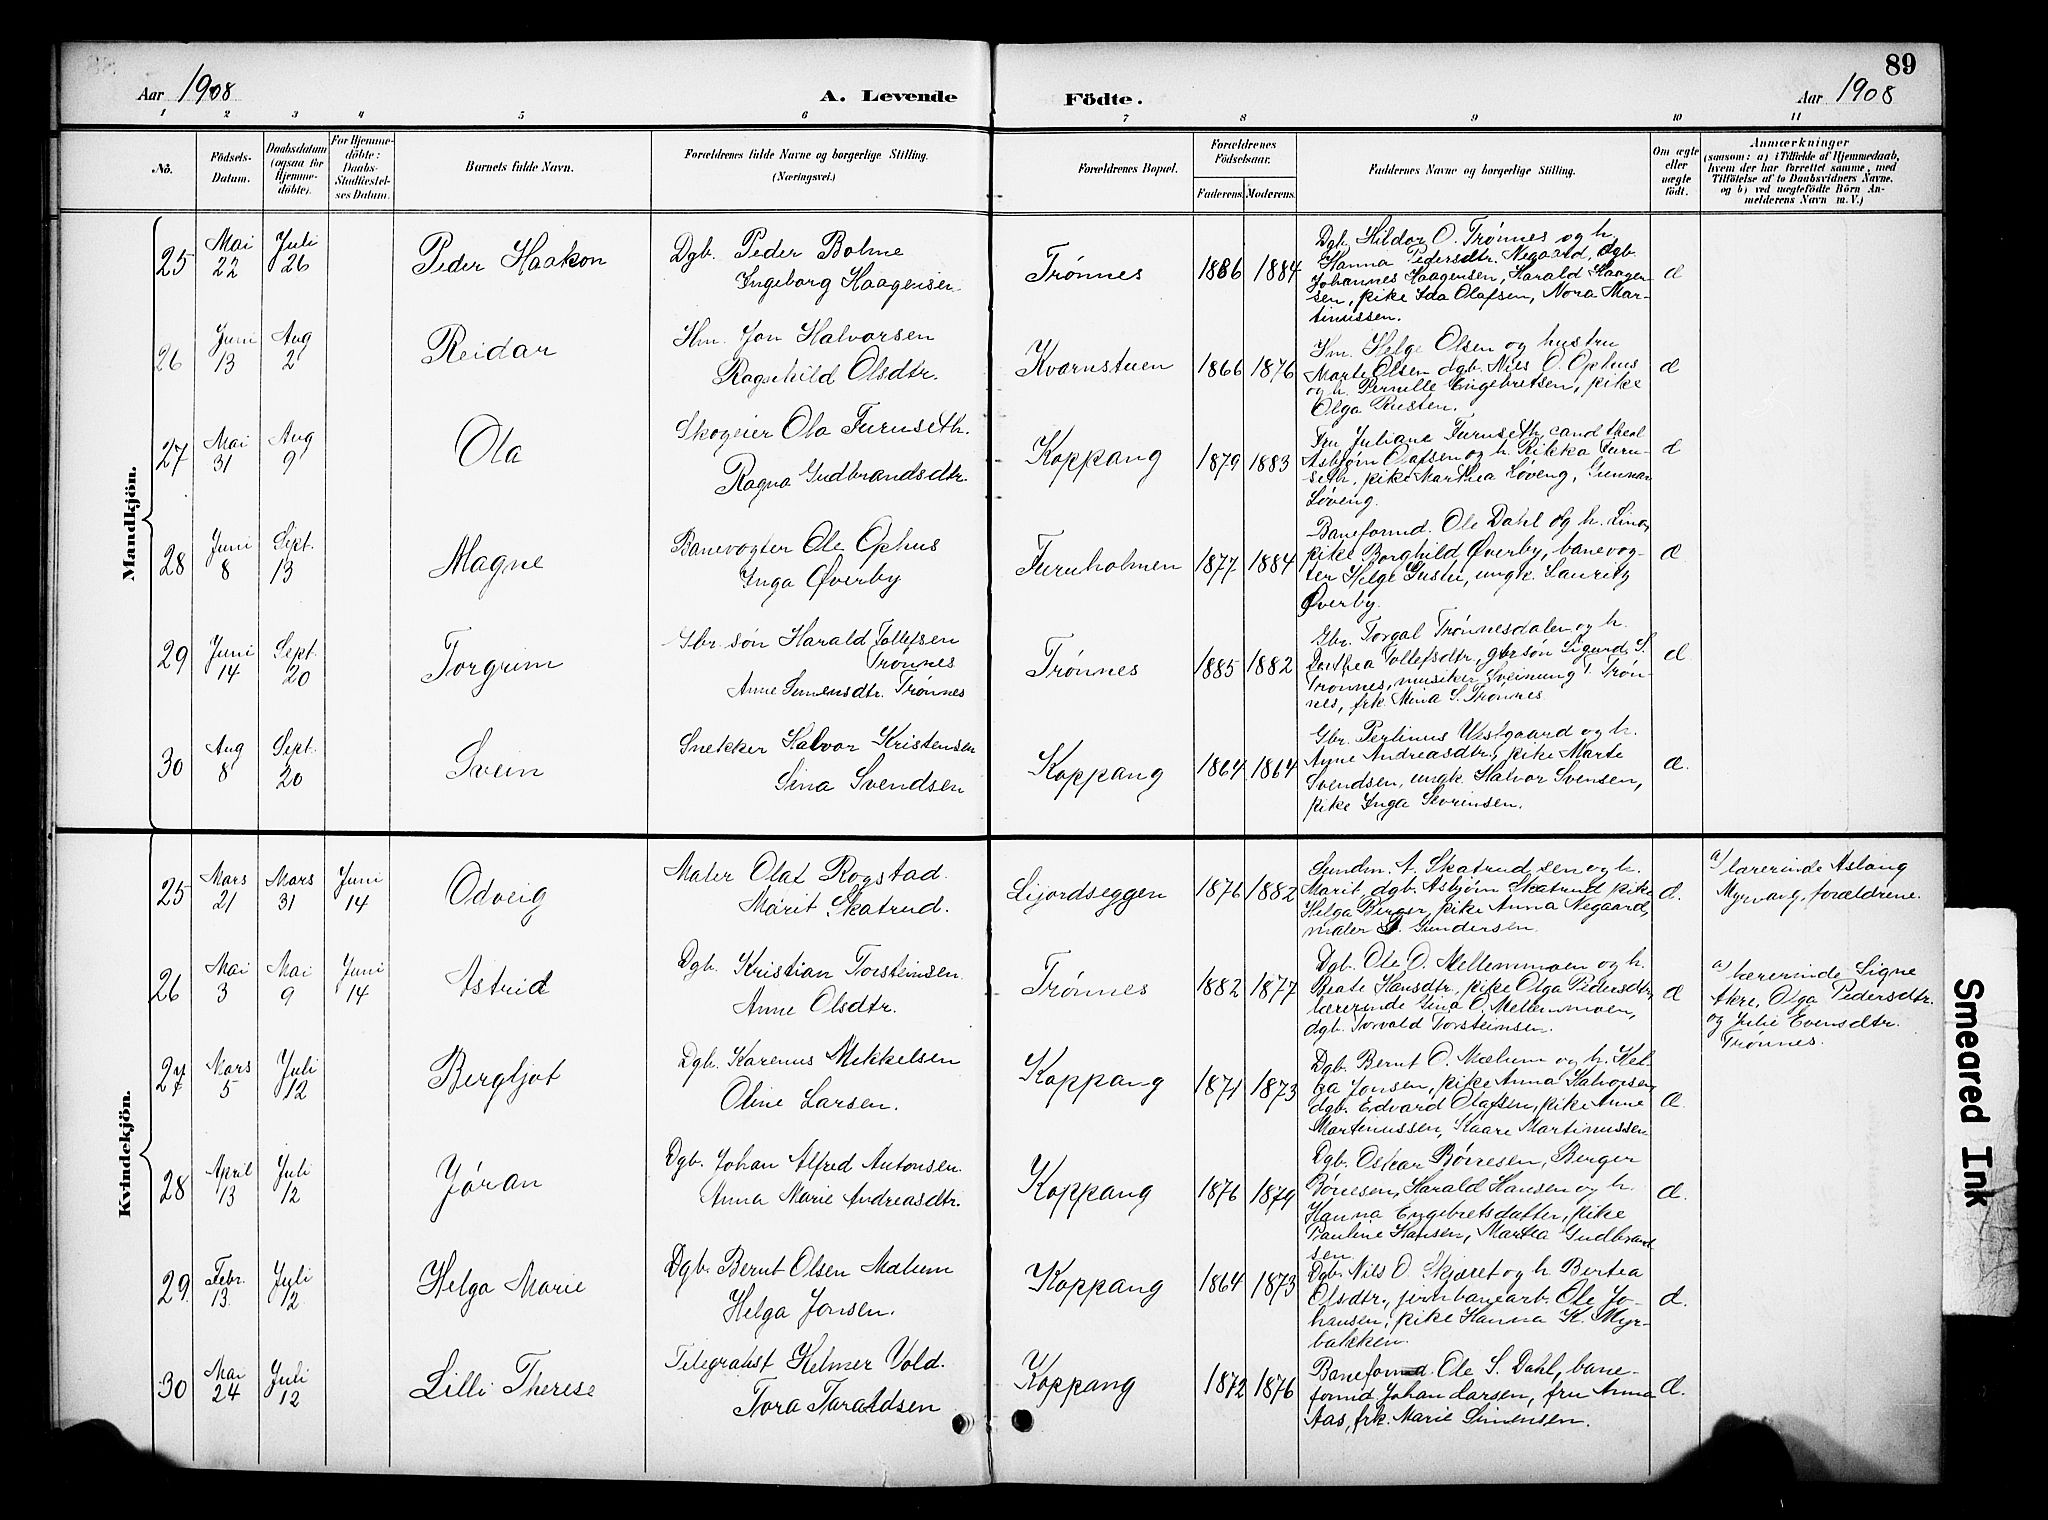 89
Aar 1908
A. Levende
Födte.
Aar 1908
1 2 3 4 5 6 7 8 9 10 11
No.
Födsels-
Datum.
Daabsdatum
(ogsaa for
Hjemme-
döbte).
For Hjemme-
döbte:
Daabs-
Stadfæstel-
ses Datum.
Barnets fulde Navn.
Forældrenes fulde Navne og borgerlige Stilling.
(Næringsvei.)
Forældrenes Bopæl.
Forældrenes
Födselsaar.
Faderens.
Moderens.
Faddernes Navne og borgerlige Stilling.
Om ægte
eller
uægte
födt.
Anmærkninger
(saasom: a) i Tilfælde af Hjemmedaab,
hvem der har forrettet samme, med
Tilföielse af to Daabsvidners Navne,
og b) ved uægtefödte Börn An-
melderens Navn m. V.)
Mandkjön.
25
Mai
22
Juli
26
Peder Haakon
Dgb. Peder Bohne
Ingeborg Haagensen
Trønnes
1886
1884
Dgb. Hildor O. Trønnes og h.
Hanna Pedersdtr. Negaard, dgb.
Johannes Haagensen, Harald Haagen-
sen, pike Ida Olafsen, Nora Mar-
tinussen.
æ
26
Juni
13
Aug
2
Reidar
Hm. Jon Halvorsen
Ragnhild Olsdtr.
Kvarnstuen
1866
1876
Hm. Helge Olsen og hustru
Marte Olsen dgb. Nils O. Ophus
og h. Pernille Engebretsen, pike
Olga Rusten.
æ
27
Mai
31
Aug
9
Ola
Skogeier Ola Furuseth.
Ragna Gudbrandsdtr.
Koppang
1879
1883
Fru Juliane Furuseth, cand theol
Asbjørn Olafsen og h. Rikka Furu-
seth, pike Marthea Løveng, Gunnar
Løveng.
æ
28
Juni
8
Sept.
13
Magne
Banevogter Ole Ophus
Inga Øverby
Furuholmen
1877
1884
Baneformd. Ole Dahl og h. Lina,
pike Borghild Øverby, banevog-
ter Helge Gustu, ungk. Lauritz
Øverby.
æ
29
Juni
14
Sept.
20
Torgrim
Gbr. søn Harald Tollefsen
Trønnes
Anne Simensdtr. Trønnes
Trønnes
1885
1882
Gbr. Torgal Trønnesdalen og h.
Dorthea Tollefsdtr, gbr søn Sigurd S.
Trønnes, musiker Sveinung T. Trøn-
nes, frk. Mina S. Trønnes
æ
30
Aug
8
Sept.
20
Svein
Snekker Halvor Kristensen
Sina Svendsen
Koppang
1864
1864
Gbr. Perlinus Vestgaard og h.
Anne Andreasdtr, pike Marte
Svendsen, ungk. Halvor Svensen,
pike Inga Sevrinsen.
æ.
Kvindekjön.
25
Mars
21
Mars
31
Juni
14
Odveig
Maler Olaf Rogstad.
Marit Skatrud.
Lijordseggen
1876
1882
A. Skatrud, sen og h.
Marit, dgb. Asbjørn Skatrud pike
Helga Berger, pike Anna Negaard,
maler Gundersen.
æ.
a) lærerinde Aslaug
Myrvang, forældrene.
26
Mai
3
Mai
9
Juni
14
Astrid
Dgb. Kristian Torsteinsen
Anne Olsdtr.
Trønnes
1882
1877
Dgb. Ole O. Mellemmoen og h.
Beate Hansdtr, pike Olga Pedersdtr,
lærerinde Gina O. Mellemmoen,
dgb. Torvald Torsteinsen.
æ
a) lærerinde Signe
Akre, Olga Pedersdtr.
og Julie Evensdtr.
Trønnes.
27
Mars
5
Juli
12
Bergljot
Dgb. Karenus Mikkelsen
Oline Larsen.
Koppang
1871
1873
Dgb. Bernt O. Mælum og h. Hel-
ga Jonsen, pike Anna Halvorsen,
dgb. Edvard Olafsen, pike Anne
Martinussen, Kaare Martinussen
æ.
28
April
13
Juli
12
Jøran
Dgb. Johan Alfred Antonsen.
Anna Marie Andreasdtr.
Koppang
1876
1879
Dgb. Oskar Børresen, Berger
Børresen, Harald Hansen og h.
Hanna Engebretsdatter, pike
Pauline Hansen, Martea Gudbrand-
sen.
æ.
29
Febr.
13.
Juli
12
Helga Marie
Dgb. Bernt Olsen Mælum
Helga Jonsen.
Koppang
1864
1873
Dgb. Nils O. Skjæret og h Bertea
Olsdtr., jernbanearb. Ole Jo-
hansen, pike Hanna K. Myr-
bakken.
æ.
30
Mai
24
Juli
12
Lilli Therese
Telegrafist Helmer Vold.
Tora Taraldsen
Koppang
1872
1876
Baneformd. Ole S. Dahl, bane-
formd Johan Larsen, fru Anna
Aas, frk. Marie Simensen.
æ.
Smeared Ink